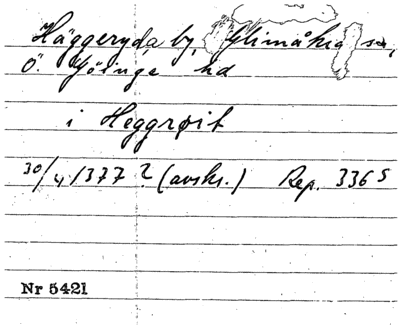 Häggeryda by, Glimåkra sn,
Ö. Göinge hd
i Heggrøit
30/4 1377 ? (avskr.) Rep. 3365
Nr 5421